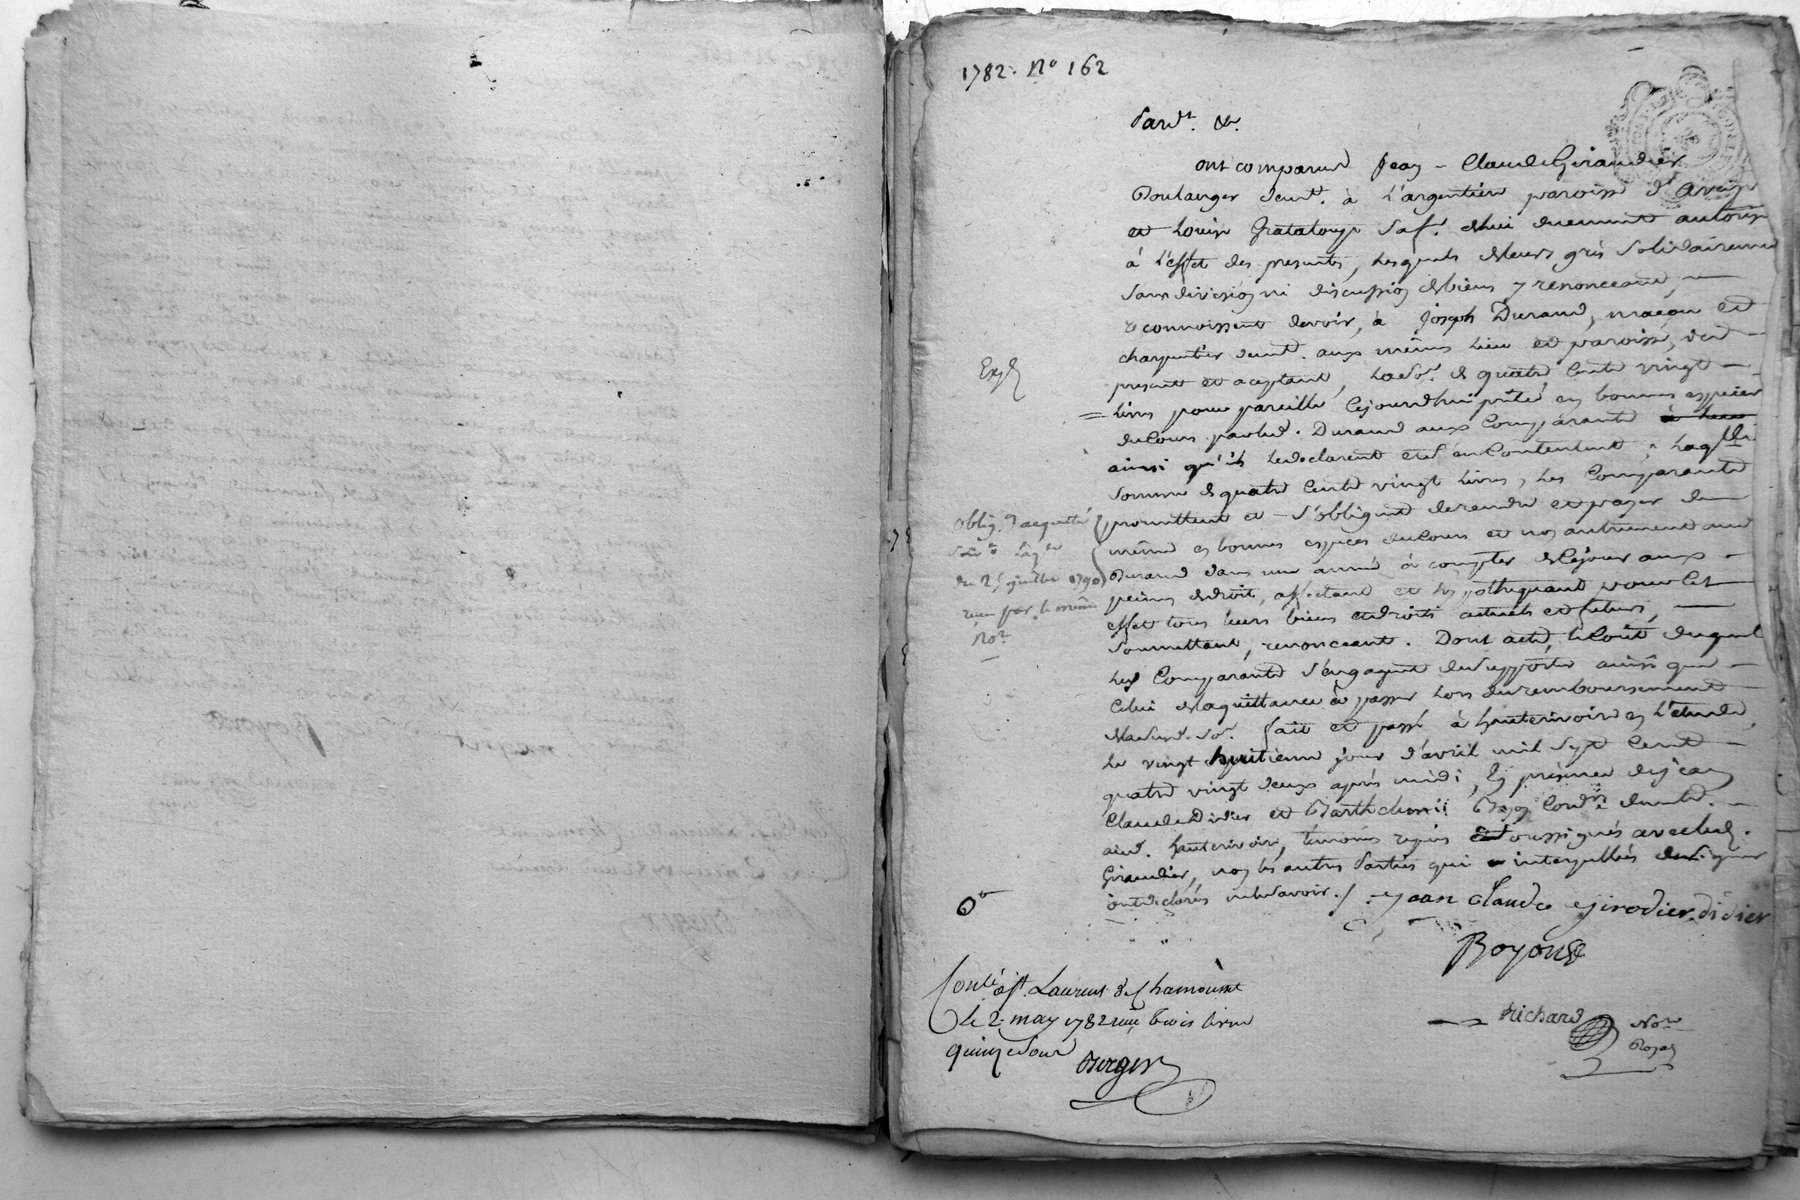 1782. No 162
Pard.t &c.
ont comparus Jean - Claude Giraudier
Boulanger demt. à l'argentiere paroisse d' Aveize
et Louise Grataloup sa f.e de lui duement autorisée
à l'effet des presentes, Lesquels de leurs grés solidairement
sans division ni discussion de biens y renonceant, —
reconnoissent devoir, à Joseph Durand, maçon et
charpentier demt. aux mêmes Lieu et paroisse, icy —
present et aceptant, La so.e de quatre cents vingt —
Livres pour pareille cejourdhui prêtée en bonnes especes
du Cours par led. Durand aux Comparants
ainsi qu'ils Le declarent et s'en Contentent ; Laq.lle
somme de quatre Cents vingt Livres, Les Comparants
promettent et - s'obligent de rendre et payer de
même en bonnes especes du Cours et non autrement aud
Durand dans une année à compter de Cejour aux -
peines de droit, affectant et hypothequant pour Cet
effet tous leurs biens et droits actuels et futurs, —
soumettant, renonceant. Dont acte, le Coût duquel
Les Comparants s'engagent de supporter ainsi que —
Celui de la quittance à passer Lors du remboursement —
de lad. so.e fait et passé à hauterivoire en l'etude,
Le vingt huitieme jour d'avril mil sept Cent —
quatre vingt deux après midi, En presence de Jean
Claude Didier et Barthelemi Cord.r demts. —
aud. hauterivoire, temoins requis et soussignés avec led.
Giraudier, non les autres Parties qui interpellées de signer
ont declarés ne le savoir ./. jean claude girodier didier
Exp.é
oblig.on acquittée
du 25 juillet 1790
reçu par le même
No.re
Boyouse
Conlé à St. Laurent de Chamousset
le 2 may 1782 reçu trois livres
quinze sous
Richard No.re
Royal